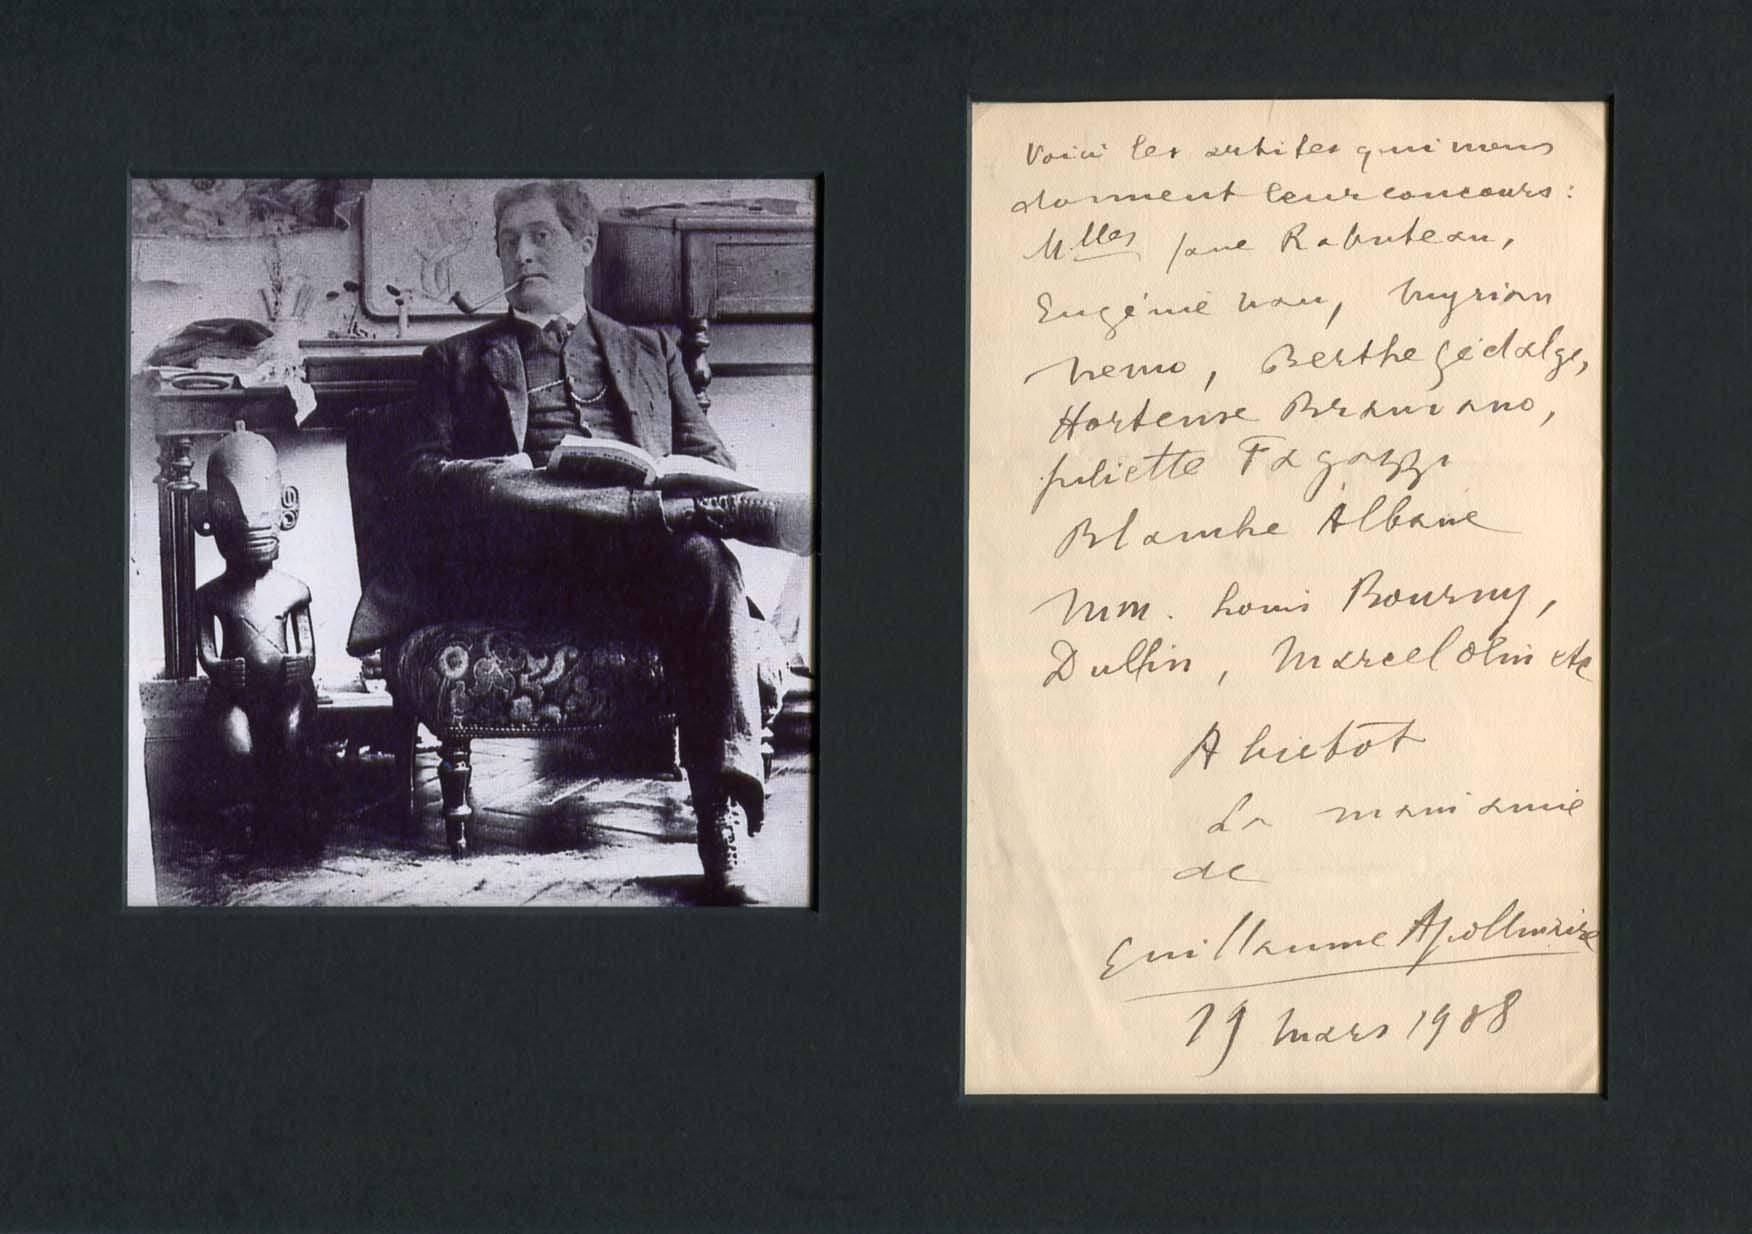 Voici les artistes qui nous
donnent leur concours :
Mlles Jane Rabuteau,
Eugénie Nau, Myrian
Nemo, Berthe Gédalge,
Hortense
Juliette Fagazzi
Blanche Albane
MM. Louis Bourny,
Dullin, Marcel Olin etc
A bientôt
La main amie
de
Guillaume Apollinaire
19 Mars 1908